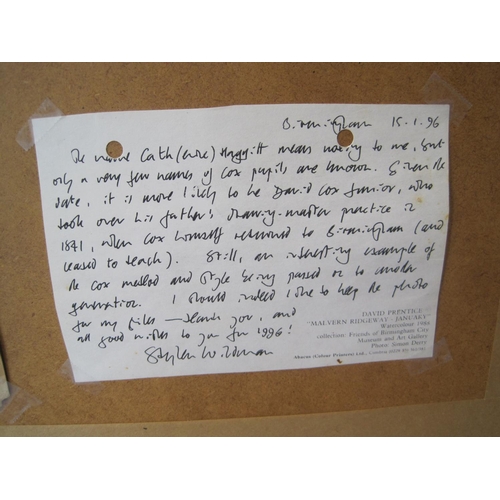 Birmingham 15.1.96
The name Cath(erine) Haggitt means nothing to me, but
only a very few names of Cox pupils are known. Given the
date, it is more likely to be David Cox Junior, who
took over his father's drawing-master practice in
1841, when Cox himself returned to Birmingham (and
ceased to teach). Still, an interesting example of
the Cox method and style being passed on to another
generation. I should indeed like to keep the photo
for my files — thank you, and
all good wishes to you for 1996!
Stephen Wildman
DAVID PRENTICE
"MALVERN RIDGEWAY - JANUARY"
Watercolour
collection: Friends of Birmingham City
Museum and Art Gallery
Photo: Simon
(Colour Printers) Ltd., London